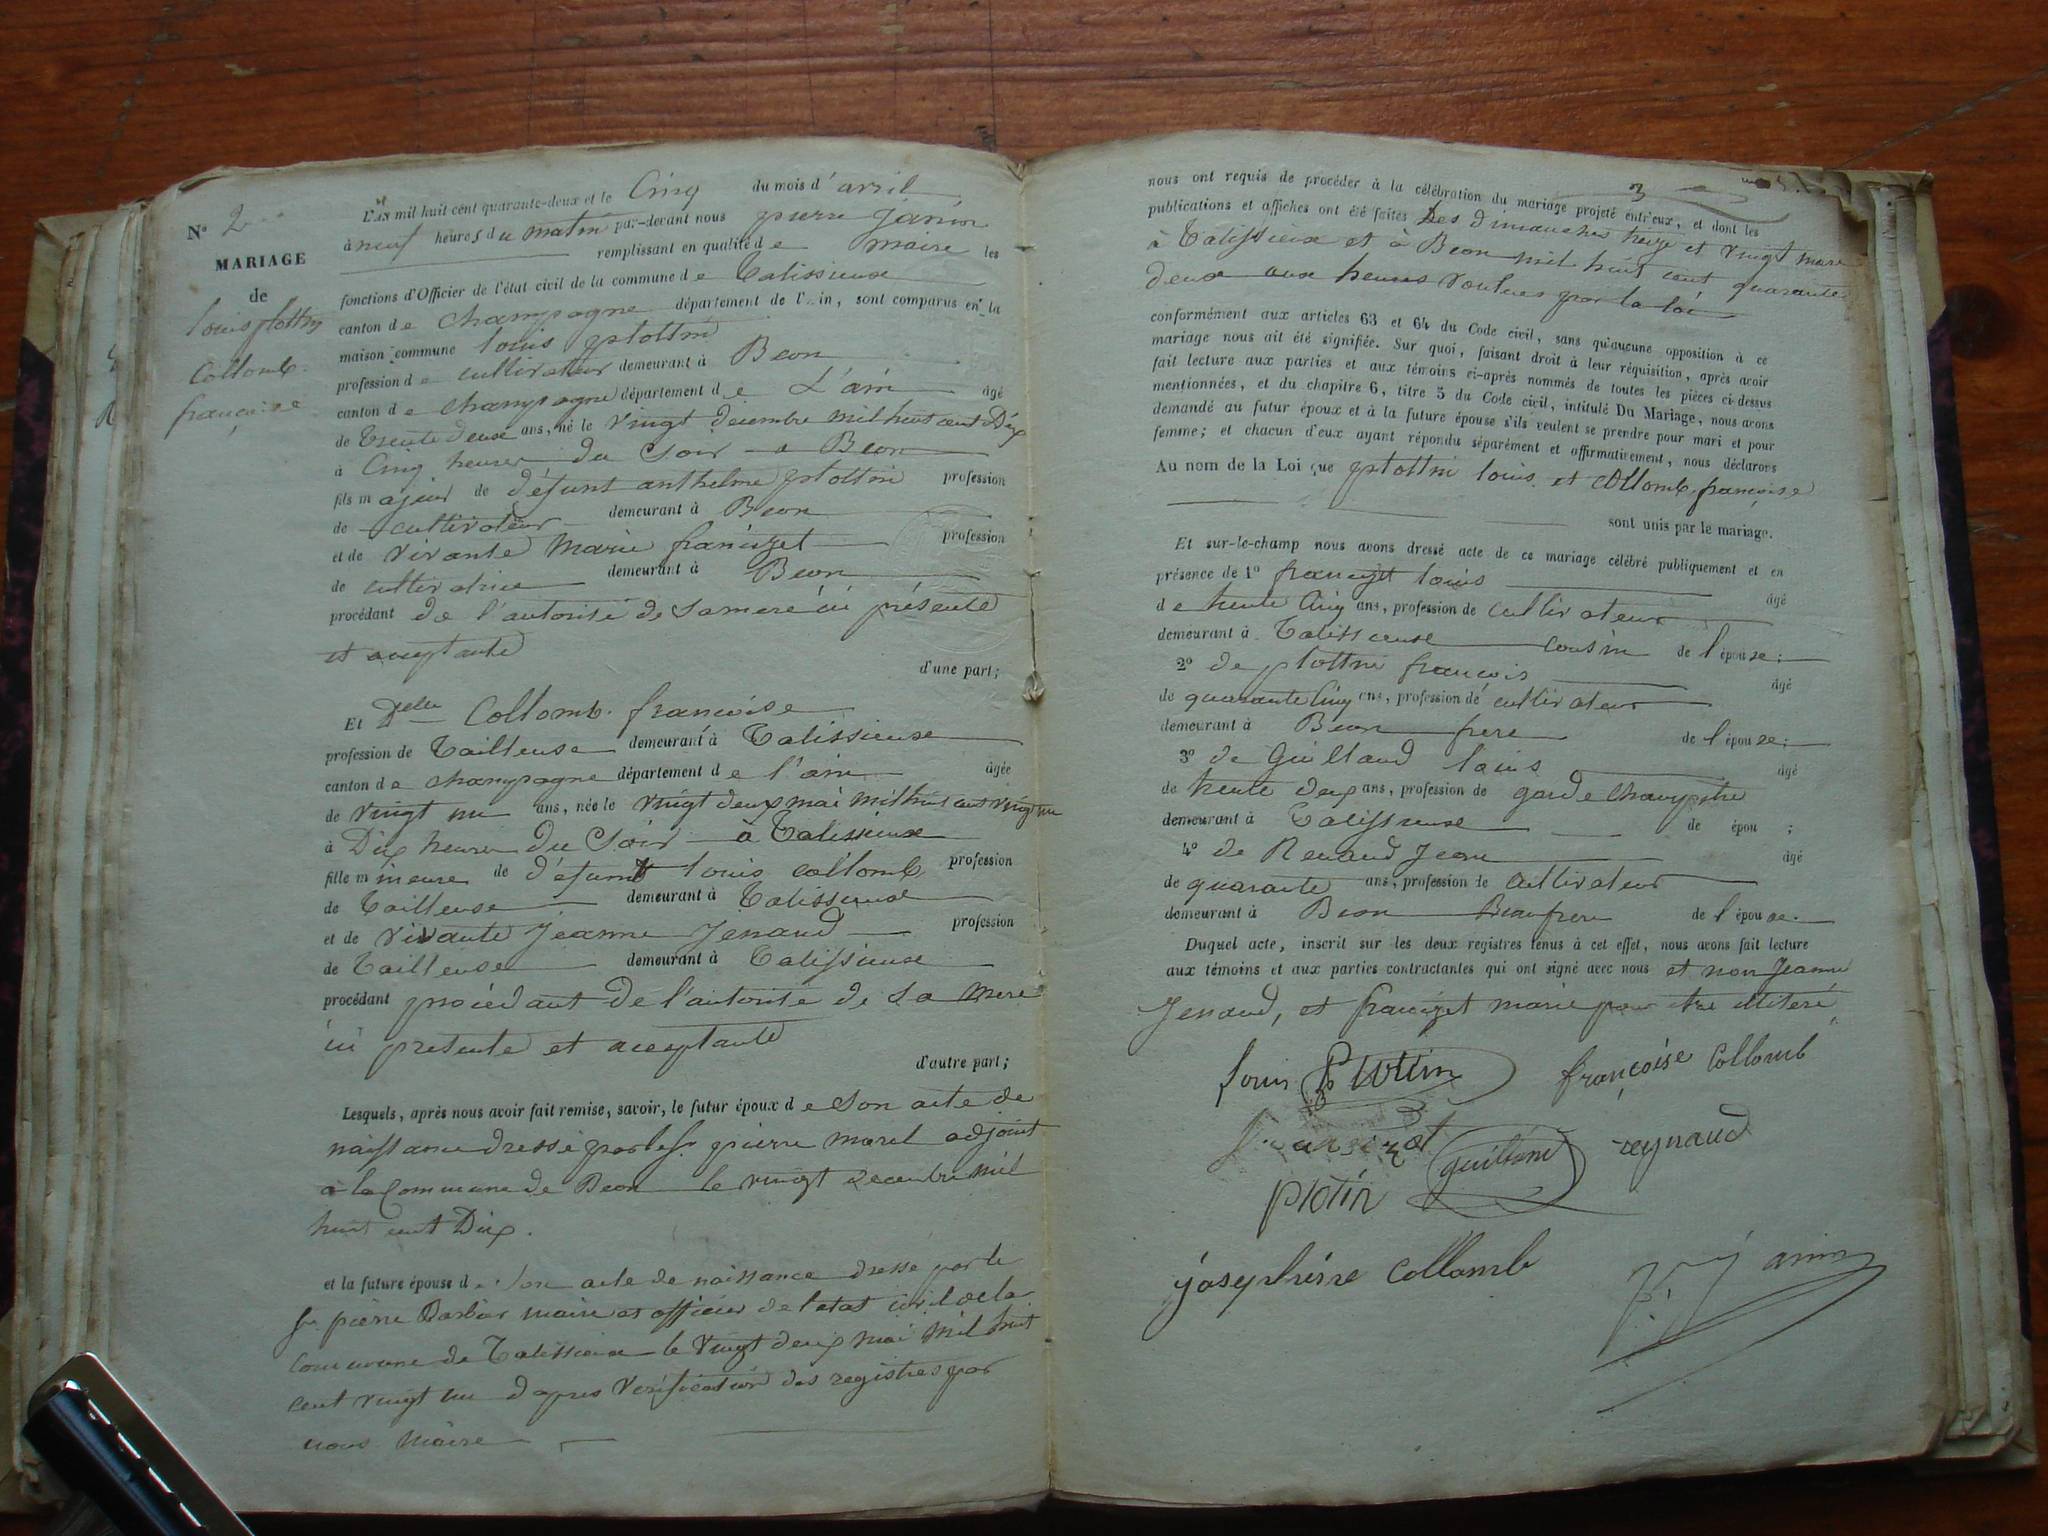 N° 2
MARIAGE
de
louis plottin
Collomb
françoise
L'AN mil huit cent quarante-deux et le Cinq du mois d' avril
à neuf heures du matin par-devant nous pierre janin
remplissant en qualité de maire les
fonctions d'Officier de l'état civil de la commune de Talissieux
canton de champagne département de l'Ain, sont comparus en la
maison commune louis plottin
profession de cultivateur demeurant à Beon
canton de champagne département de L'ain âgé
de trente deux ans, né le vingt decembre mil huit cent Dix
à Cinq heures du Soir a Beon
fils majeur de défunt anthelme plottin profession
de cultivateur demeurant à Beon
et de vivante Marie francizet profession
de cultivatrice demeurant à Beon
procédant de l'autorité de sa mere ici présente
et acceptante
d'une part;
Et Delle Collomb françoise
profession de Tailleuse demeurant à Talissieuse
canton de champagne département de l'ain âgée
de vingt un ans, née le vingt deux mai mil huit cent vingt un
à Dix heures du Soir à Talissieux
fille mineure de défunt louis collomb profession
de Tailleuse demeurant à Talissieuse
et de vivante Jeanne Jenaud profession
de Tailleuse demeurant à Talissieuse
procédant procédant de l'autorité de sa mere
ici presente et acceptante
d'autre part;
Lesquels, après nous avoir fait remise, savoir, le futur époux de son acte de
naissance dressé par le sr pierre morel adjoint
a la Commune de Beon le vingt decembre mil
huit cent Dix.
et la future épouse de son acte de naissance dressé par le
sr pierre Barbar maire et officier de l'état civil de la
commune de Talissieux le vingt deux mai mil huit
cent vingt un d'apres verification des registres par
nous maire
3
nous ont requis de procéder à la célébration du mariage projeté entr'eux, et dont les
publications et affiches ont été faites Les dimanches treize et vingt mars
à Talissieux et à Beon mil huit cent quarante
deux aux heures voulues par la loi
conformément aux articles 63 et 64 du Code civil, sans qu'aucune opposition à ce
mariage nous ait été signifiée. Sur quoi, faisant droit à leur réquisition, après avoir
fait lecture aux parties et aux témoins ci-après nommés de toutes les pièces ci-dessus
mentionnées, et du chapitre 6, titre 5 du Code civil, intitulé Du Mariage, nous avons
demandé au futur époux et à la future épouse s'ils veulent se prendre pour mari et pour
femme; et chacun d'eux ayant répondu séparément et affirmativement, nous déclarons
Au nom de la Loi que plottin louis et collomb françoise
sont unis par le mariage.
Et sur-le-champ nous avons dressé acte de ce mariage célébré publiquement et en
présence de 1° francizet louis âgé
de trente Cinq ans, profession de cultivateur
demeurant à Talissieuse cousin de l'épouse;
2° de plottin françois âgé
de quarante Cinq ans, profession de cultivateur
demeurant à Beon frere de l'épouse;
3° de Guilland louis âgé
de trente deux ans, profession de garde champetre
demeurant à Talissieuse de épou ;
4° de Renaud Jean âgé
de quarante ans, profession de Cultivateur
demeurant à Beon Beaufrere de l'épouse.
Duquel acte, inscrit sur les deux registres tenus à cet effet, nous avons fait lecture
aux témoins et aux parties contractantes qui ont signé avec nous et non Jeanne
Jenaud, et francizet marie pour etre illiteré
Louis Plottin françoise Collomb
francizet guilland reynaud
plotin
josephine collomb P. Janin